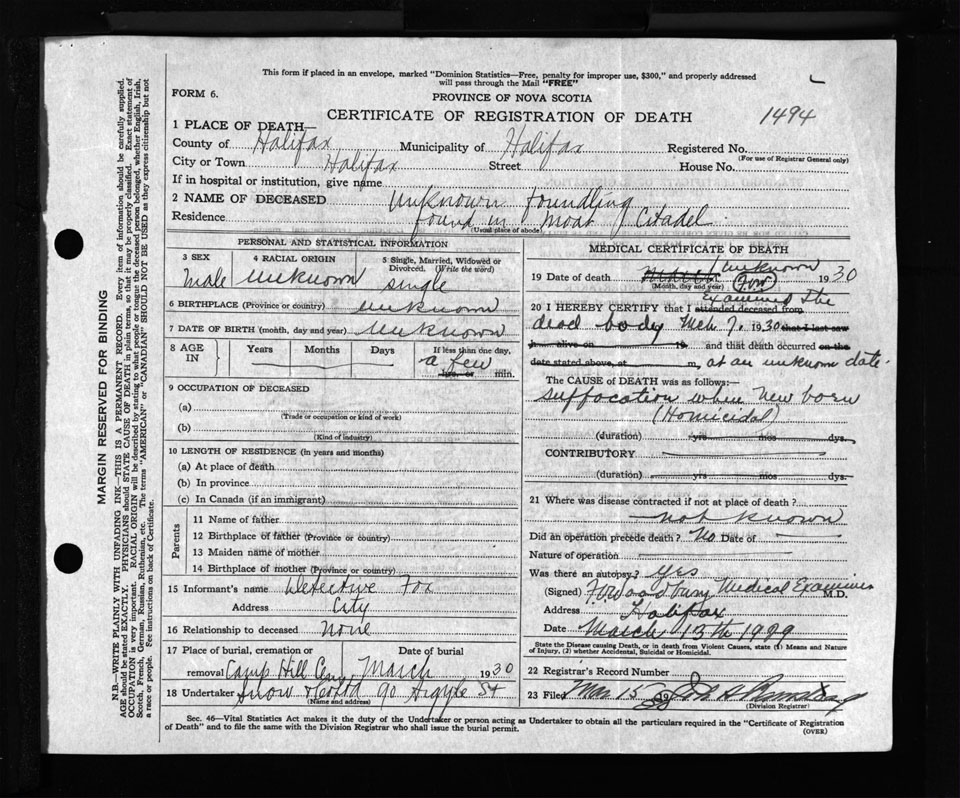 This form if placed in an envelope, marked "Dominion Statistics—Free, penalty for improper use, $300," and properly addressed
will pass through the Mail "FREE"
FORM 6.
PROVINCE OF NOVA SCOTIA
CERTIFICATE OF REGISTRATION OF DEATH
1494
1 PLACE OF DEATH—
County of Halifax Municipality of Halifax Registered No.
(For use of Registrar General only)
City or Town Halifax Street House No.
If in hospital or institution, give name
2 NAME OF DECEASED Unknown Foundling
Residence found in moat Citadel
(Usual place of abode)
PERSONAL AND STATISTICAL INFORMATION
3 SEX 4 RACIAL ORIGIN 5 Single, Married, Widowed or
Divorced. (Write the word)
Male unknown single
6 BIRTHPLACE (Province or country) unknown
7 DATE OF BIRTH (month, day and year) unknown
8 AGE IN Years Months Days If less than one day,
a few
hrs. or min.
9 OCCUPATION OF DECEASED
(a)
(Trade or occupation or kind of work)
(b)
(Kind of industry)
10 LENGTH OF RESIDENCE (in years and months)
(a) At place of death
(b) In province
(c) In Canada (if an immigrant)
Parents
11 Name of father
12 Birthplace of father (Province or country)
13 Maiden name of mother
14 Birthplace of mother (Province or country)
15 Informant's name Detective Fox
Address City
16 Relationship to deceased none
17 Place of burial, cremation or Date of burial
removal Camp Hill Cem March 1930
18 Undertaker Snow 90 Argyle St
(Name and address)
MEDICAL CERTIFICATE OF DEATH
19 Date of death unknown 1930
(Month, day and year)
20 I HEREBY CERTIFY that I attended deceased from examined the
dead body Mch 7. 1930 that I last saw
h alive on 19 and that death occurred on the
date stated above, at m, at an unknown date.
The CAUSE of DEATH was as follows:—
suffocation when new born
(Homicidal)
(duration) yrs mos dys.
CONTRIBUTORY
(duration) yrs mos dys.
21 Where was disease contracted if not at place of death?
not known
Did an operation precede death? No Date of
Nature of operation
Was there an autopsy? Yes
(Signed) Woodbury Medical Examiner M.D.
Address Halifax
Date March 13th 1929
State the Disease causing Death, or in death from Violent Causes, state (1) Means and Nature
of Injury, (2) whether Accidental, Suicidal or Homicidal.
22 Registrar's Record No.
23 Filed Mar 15
(Division Registrar)
Sec. 46—Vital Statistics Act makes it the duty of the Undertaker or person acting as Undertaker to obtain all the particulars required in the "Certificate of Registration
of Death" and to file the same with the Division Registrar who shall issue the burial permit.
(OVER)
MARGIN RESERVED FOR BINDING
N.B.—WRITE PLAINLY WITH UNFADING INK—THIS IS A PERMANENT RECORD. Every item of information should be carefully supplied.
AGE should be stated EXACTLY. PHYSICIANS should STATE CAUSE OF DEATH in plain terms, so that it may be properly classified. Exact statement of
OCCUPATION is very important. RACIAL ORIGIN will be described by stating to what people or tongue the deceased person belonged, whether English, Irish,
Scotch, French, German, Russian, Ruthenian, etc. The terms "AMERICAN" or "CANADIAN" SHOULD NOT BE USED as they express citizenship but not
a race or people. See instructions on back of Certificate.